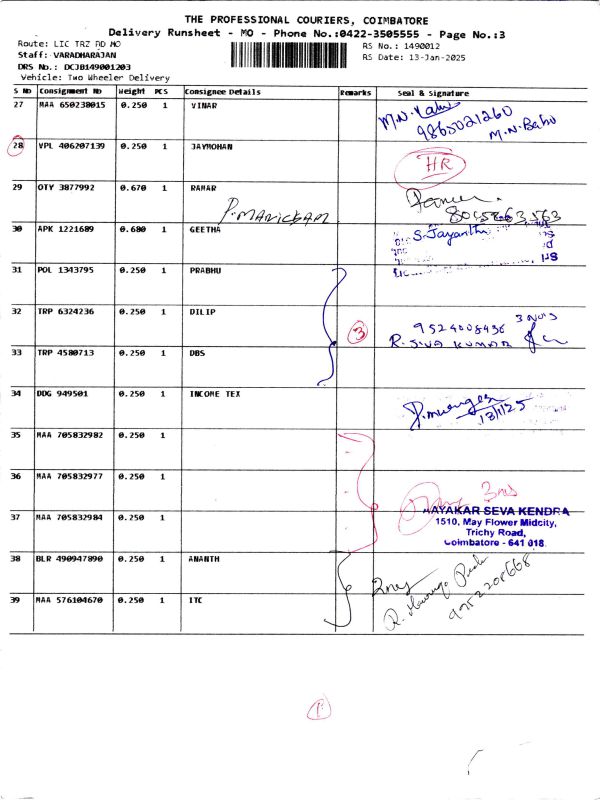 THE PROFESSIONAL COURIERS, COIMBATORE
Delivery Runsheet - MO - Phone No.:0422-3505555 - Page No.:3
Route: LIC TRZ RD MO
RS No.: 1490012
Staff: VARADHARAJAN
RS Date: 13-Jan-2025
DRS No.: DCJB149001203
Vehicle: Two Wheeler Delivery
S No Consignment No Weight PCS Consignee Details Remarks Seal & Signature
27 MAA 650238015 0.250 1 VINAR
9865021260
M.N. Babu
28 VPL 406207139 0.250 1 JAYMOHAN
HR
29 OTY 3877992 0.670 1 RAMAR
P. MANICKAM
30 APK 1221689 0.680 1 GEETHA
S. Jayanthi
31 POL 1343795 0.250 1 PRABHU
32 TRP 6324236 0.250 1 DILIP
3
9524008436 3 Nos
R. SIVA KUMAR
33 TRP 4580713 0.250 1 DBS
34 DDG 949501 0.250 1 INCOME TEX
P. Murugesh
13/1/25
35 MAA 705832982 0.250 1
36 MAA 705832977 0.250 1
3 nos
37 MAA 705832984 0.250 1
AAYAKAR SEVA KENDRA
1510, May Flower Midcity,
Trichy Road,
Coimbatore - 641 018.
38 BLR 490947890 0.250 1 ANANTH
9952208668
39 MAA 576104670 0.250 1 ITC